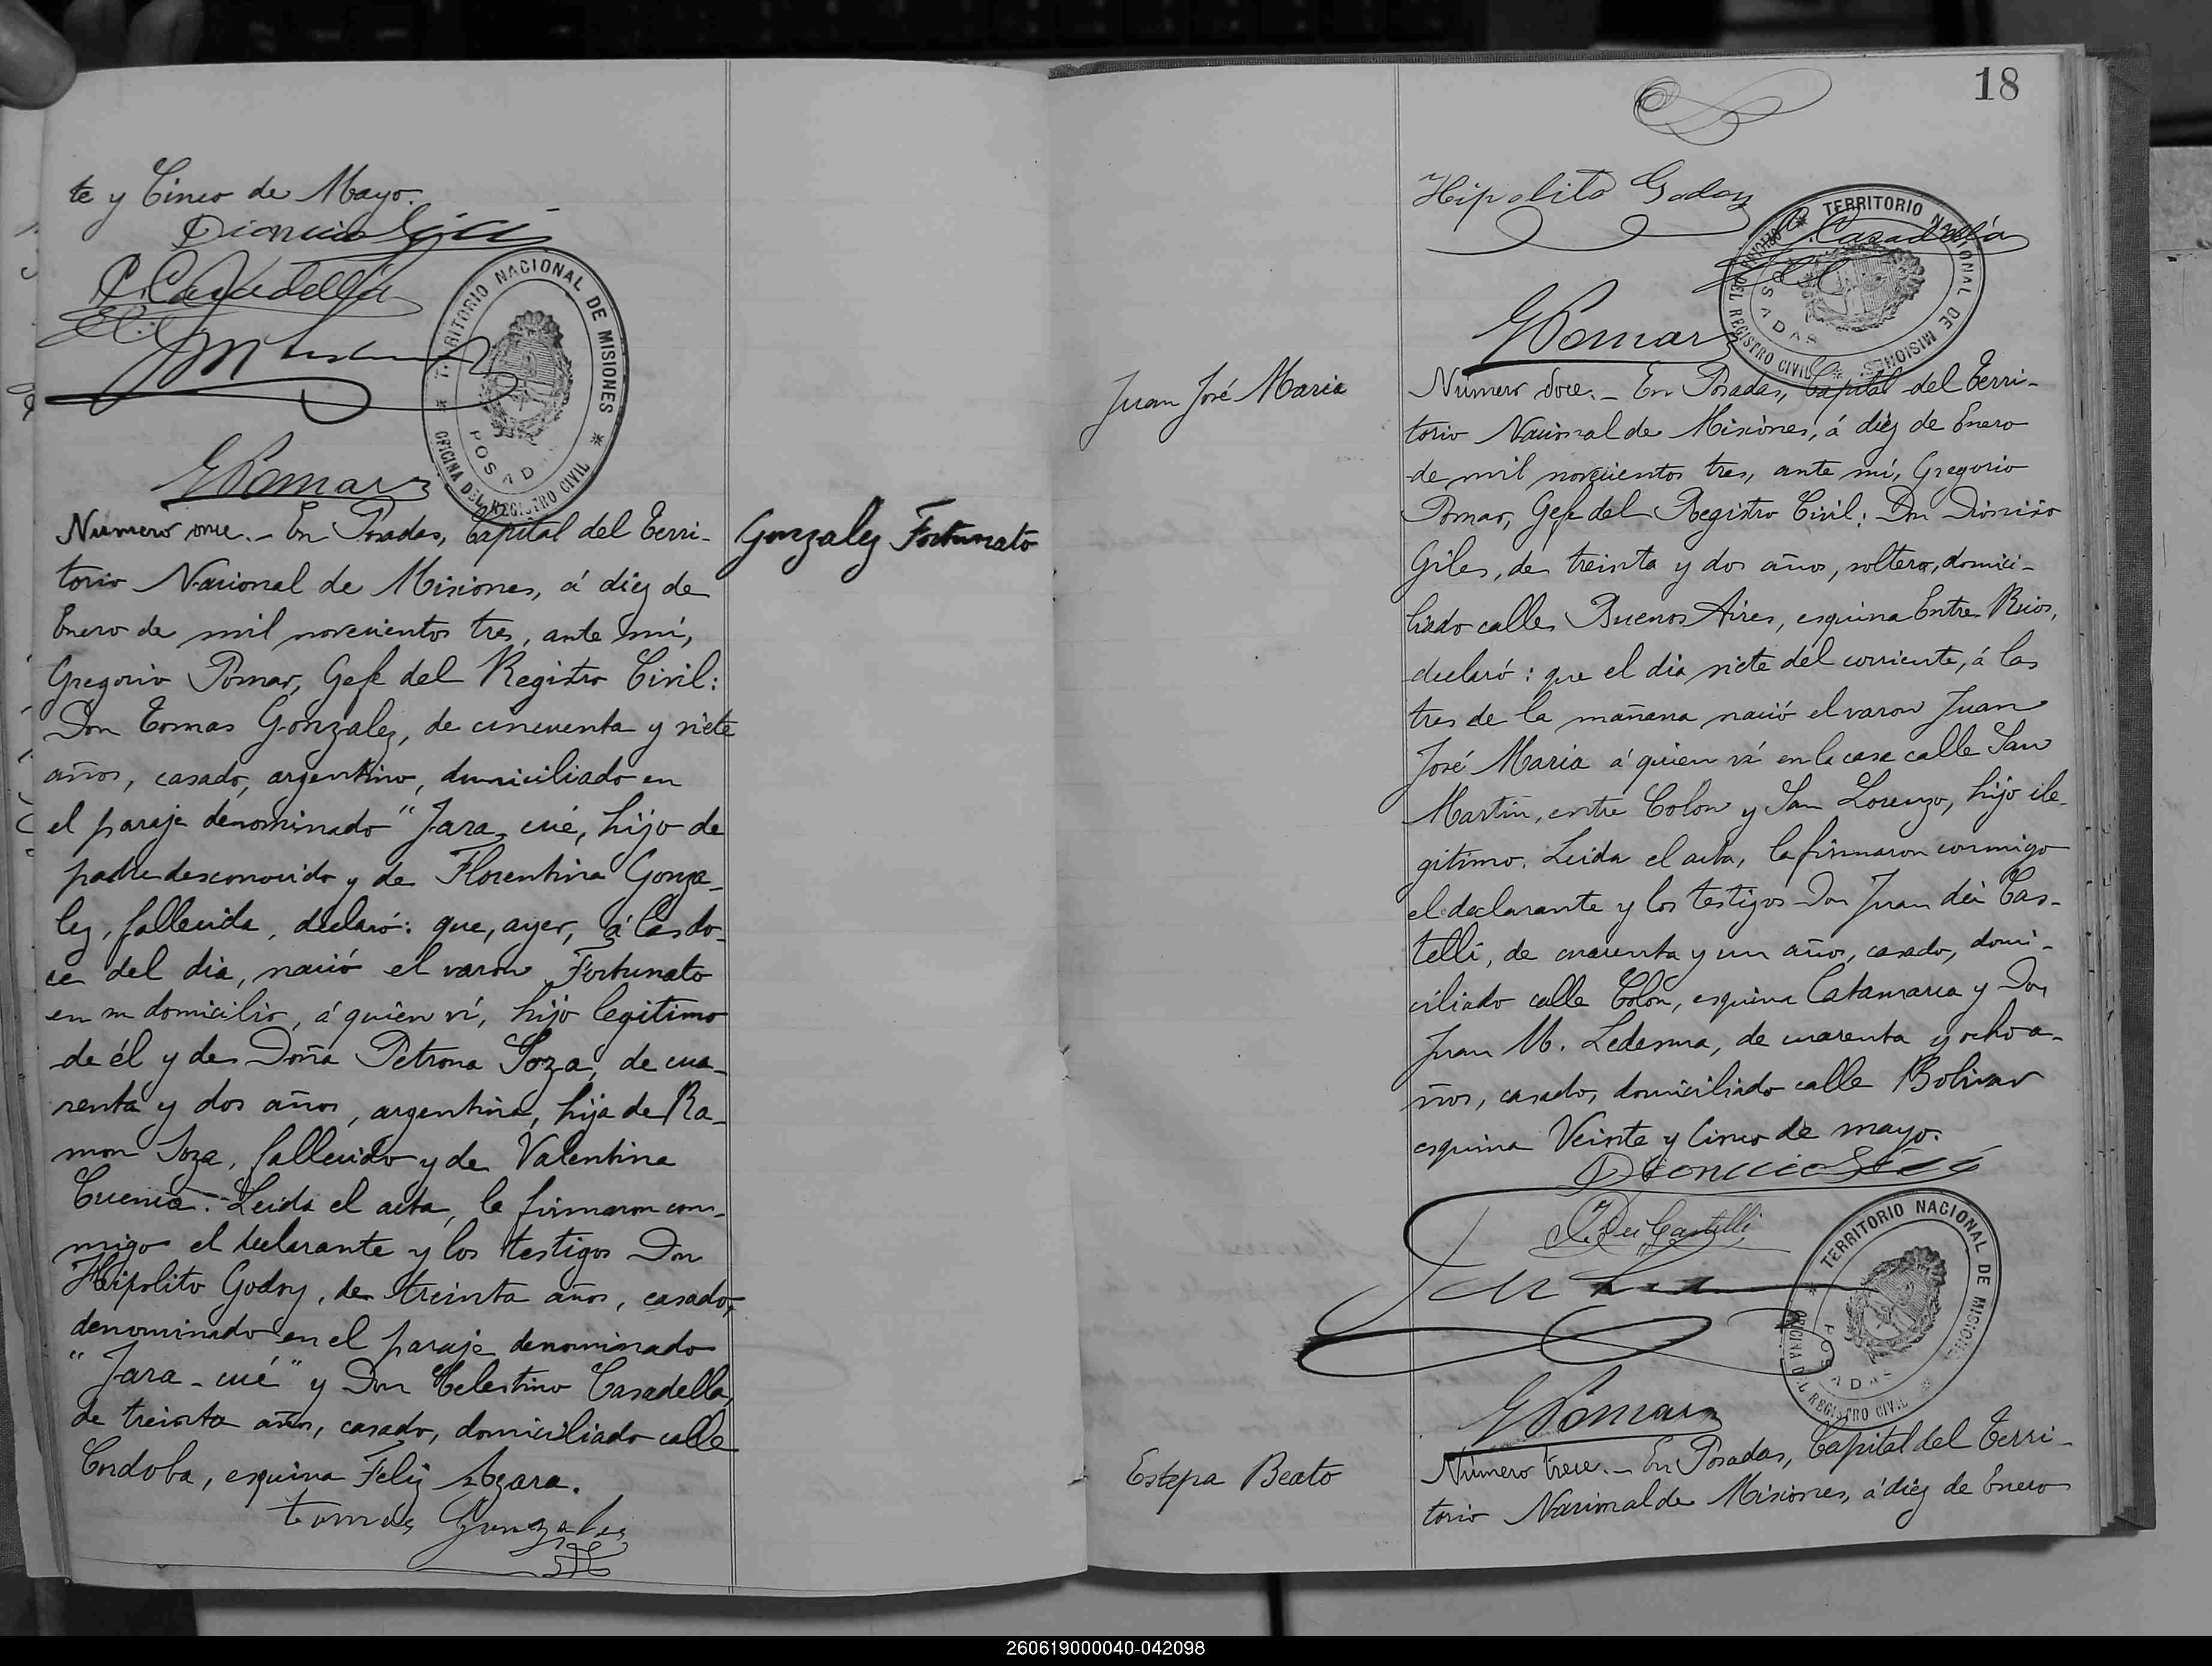 te y Cinco de Mayo.
Dionicio Giles
C. Casadella
TERRITORIO NACIONAL DE MISIONES
OFICINA DEL REGISTRO CIVIL
POSADAS
GPomar
Número once. - En Posadas, Capital del Terri-
torio Nacional de Misiones, á diez de
Enero de mil novecientos tres, ante mí,
Gregorio Pomar, Gefe del Registro Civil:
Don Tomas Gonzalez, de cincuenta y siete
años, casado, argentino, domiciliado en
el paraje denominado "Jara-cué, hijo de
padre desconocido y de Florentina Gonza-
lez, fallecida, declaró: que, ayer, á las do-
ce del dia, nació el varon Fortunato
en su domicilio, á quién ví, hijo legitimo
de él y de Doña Petrona Soza, de cua-
renta y dos años, argentina, hija de Ra-
mon Soza, fallecido y de Valentina
Cuenca. - Leida el acta, la firmaron con-
migo el declarante y los testigos Don
Hipolito Godoy, de treinta años, casado,
denominado en el paraje denominado
"Jara-cué" y Don Celestino Casadella,
de treinta años, casado, domiciliado calle
Cordoba, esquina Feliz Azara.
tomás Gonzales
Gonzalez Fortunato
18
Hipolito Godoy
C. Casadella
TERRITORIO NACIONAL DE MISIONES
OFICINA DEL REGISTRO CIVIL
POSADAS
GPomar
Juan José Maria
Número doce. - En Posadas, Capital del Terri-
torio Nacional de Misiones, á diez de Enero
de mil novecientos tres, ante mí, Gregorio
Pomar, Gefe del Registro Civil: Don Dionisio
Giles, de treinta y dos años, soltero, domici-
liado calle Buenos Aires, esquina Entre Rios,
declaró: que el dia siete del corriente, á las
tres de la mañana nació el varon Juan
José Maria á quien ví en la casa calle San
Martin, entre Colon y San Lorenzo, hijo ile-
gitimo. Leida el acta, la firmaron conmigo
el declarante y los testigos Don Juan dei Cas-
telli, de cuarenta y un años, casado, domi-
ciliado calle Colón, esquina Catamarca y Don
Juan M. Ledesma, de cuarenta y ocho a-
ños, casado, domiciliado calle Bolivar
esquina Veinte y Cinco de mayo.
Dionicio Giles
J. Dei Castelli
TERRITORIO NACIONAL DE MISIONES
OFICINA DEL REGISTRO CIVIL
POSADAS
GPomar
Estepa Beato
Número trece. - En Posadas, Capital del Terri-
torio Nacional de Misiones, á diez de Enero
260619000040-042098